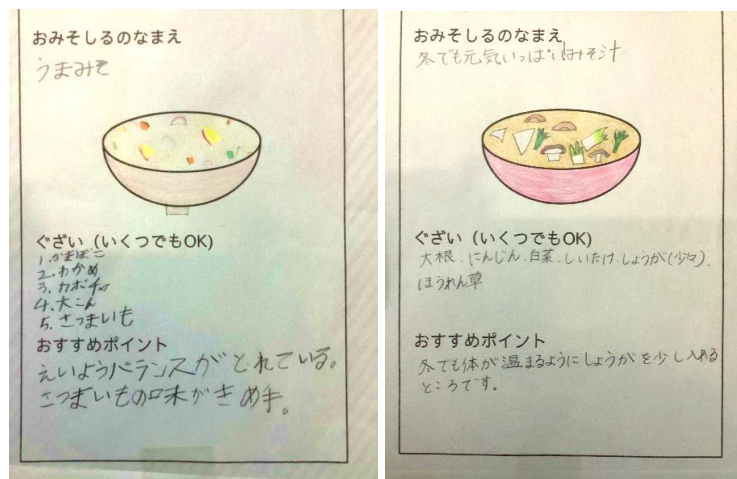 おみそしるのなまえ
うまみそ
ぐざい（いくつでもOK）
1.かまぼこ
2.わかめ
3.カボチャ
4.大こん
5.さつまいも
おすすめポイント
えいようバランスがとれている。
さつまいもの味がきめ手。
おみそしるのなまえ
冬でも元気いっぱいみそ汁
ぐざい（いくつでもOK）
大根、にんじん、白菜、しいたけ、しょうが(少々)、
ほうれん草
おすすめポイント
冬でも体が温まるようにしょうがを少し入れる
ところです。